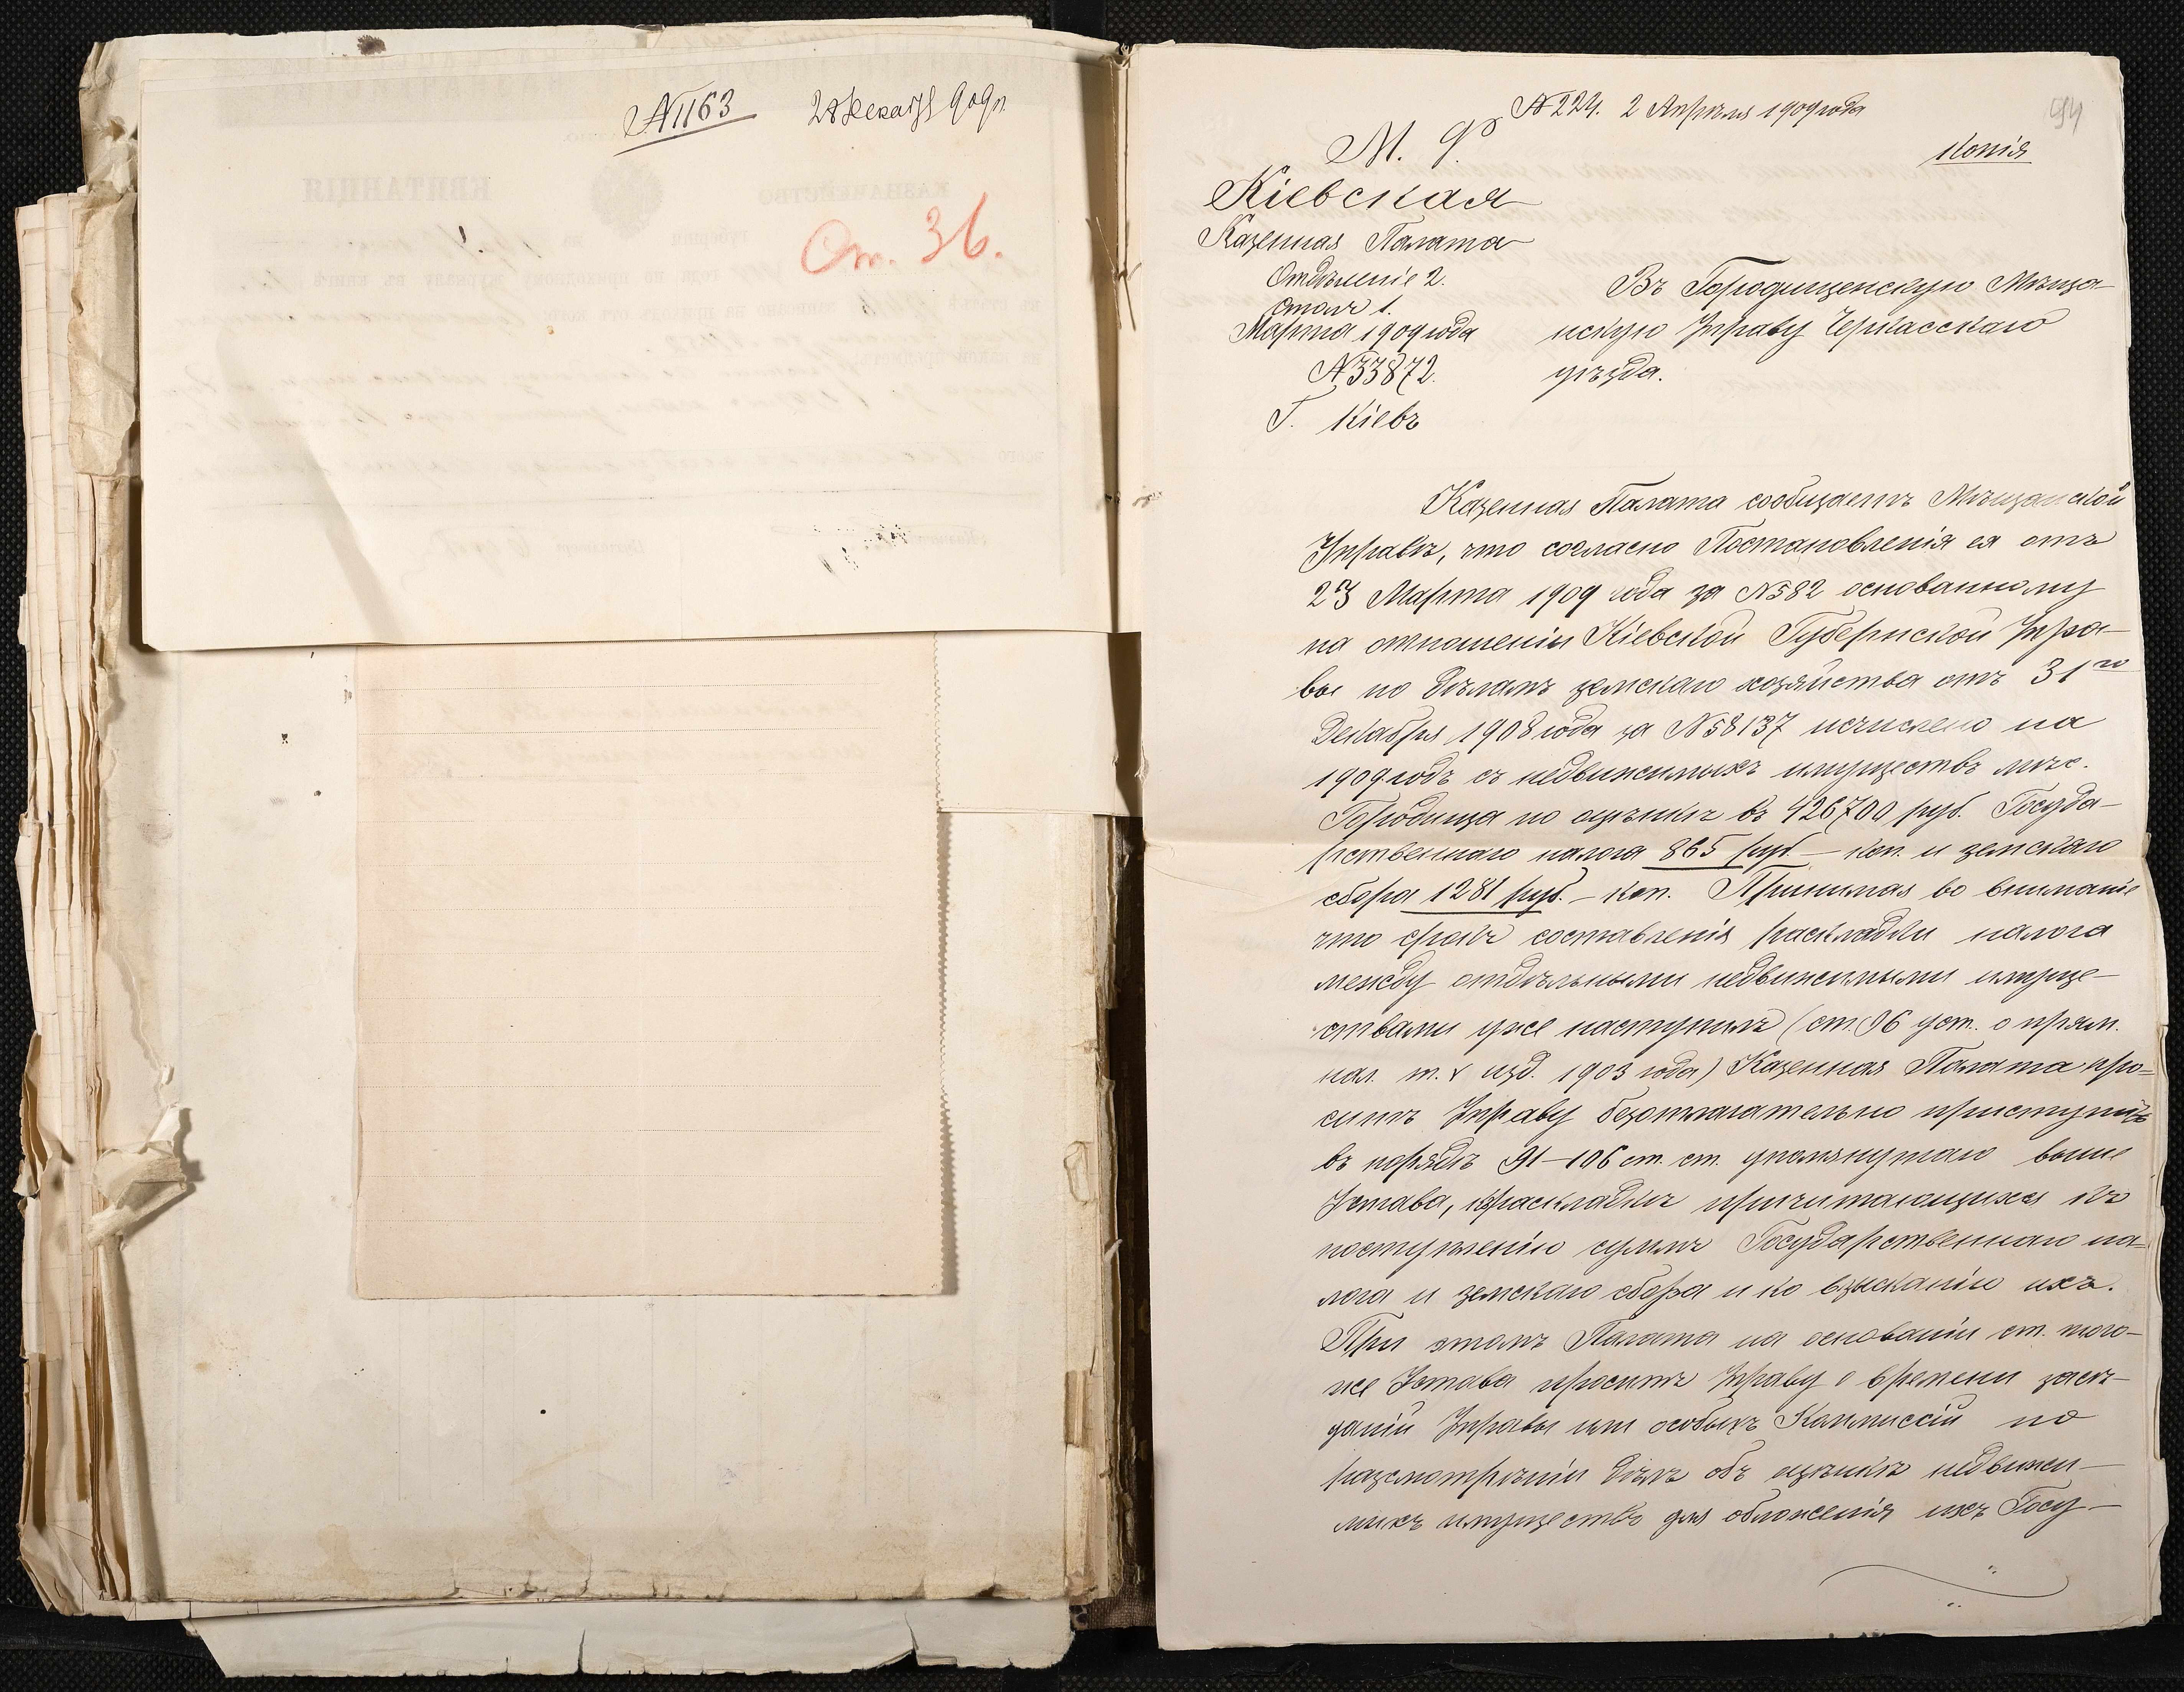 №1163 28 Декабр 909 г.
От. 36.
КВИТАНЦІЯ
КАЗНАЧЕЙСТВО
№ 224. 2 Апрѣля 1909 года
94
М. Ф.
Копія
Кіевская
Казенная Палата
Отдѣленіе 2.
Столъ 1.
Марта 1909 года
№33872.
Г. Кіевъ
Въ Городищенскую Мѣща-
нскую Управу Черкасскаго
уѣзда.
Казенная Палата сообщаетъ Мѣщанской
Управѣ, что согласно Постановленія ея отъ
23 Марта 1909 года за №582 основанному
на отношеніи Кіевской Губернской Упра-
вы по дѣламъ земскаго хозяйства отъ 31го
Декабря 1908 года за №58137 исчислено на
1909 годъ съ недвижимыхъ имуществъ мѣс.
Городища по оцѣнкѣ въ 426700 руб. Госуда-
рственнаго налога 865 руб. — коп. и земскаго
сбора 1281 руб. — коп. Принимая во вниманіе
что срокъ составленія раскладки налога
между отдѣльными недвижимыми имуще-
ствами уже наступилъ (ст. 96 уст. о прям.
нал. т. V изд. 1903 года) Казенная Палата про=
ситъ Управу безотлагательно приступить
въ порядкѣ 91—106 ст. ст. упомянутаго выше
Устава, къ раскладкѣ причитающихся къ
поступленію суммъ Государственнаго на=
лога и земскаго сбора и ко взысканію ихъ.
При этомъ Палата на основаніи ст. того-
же Устава проситъ Управу о времени засѣ-
даній Управы или особыхъ Коммиссій по
разсмотрѣнію дѣлъ объ оцѣнкѣ недвижи-
мыхъ имуществъ для обложенія ихъ Госу-